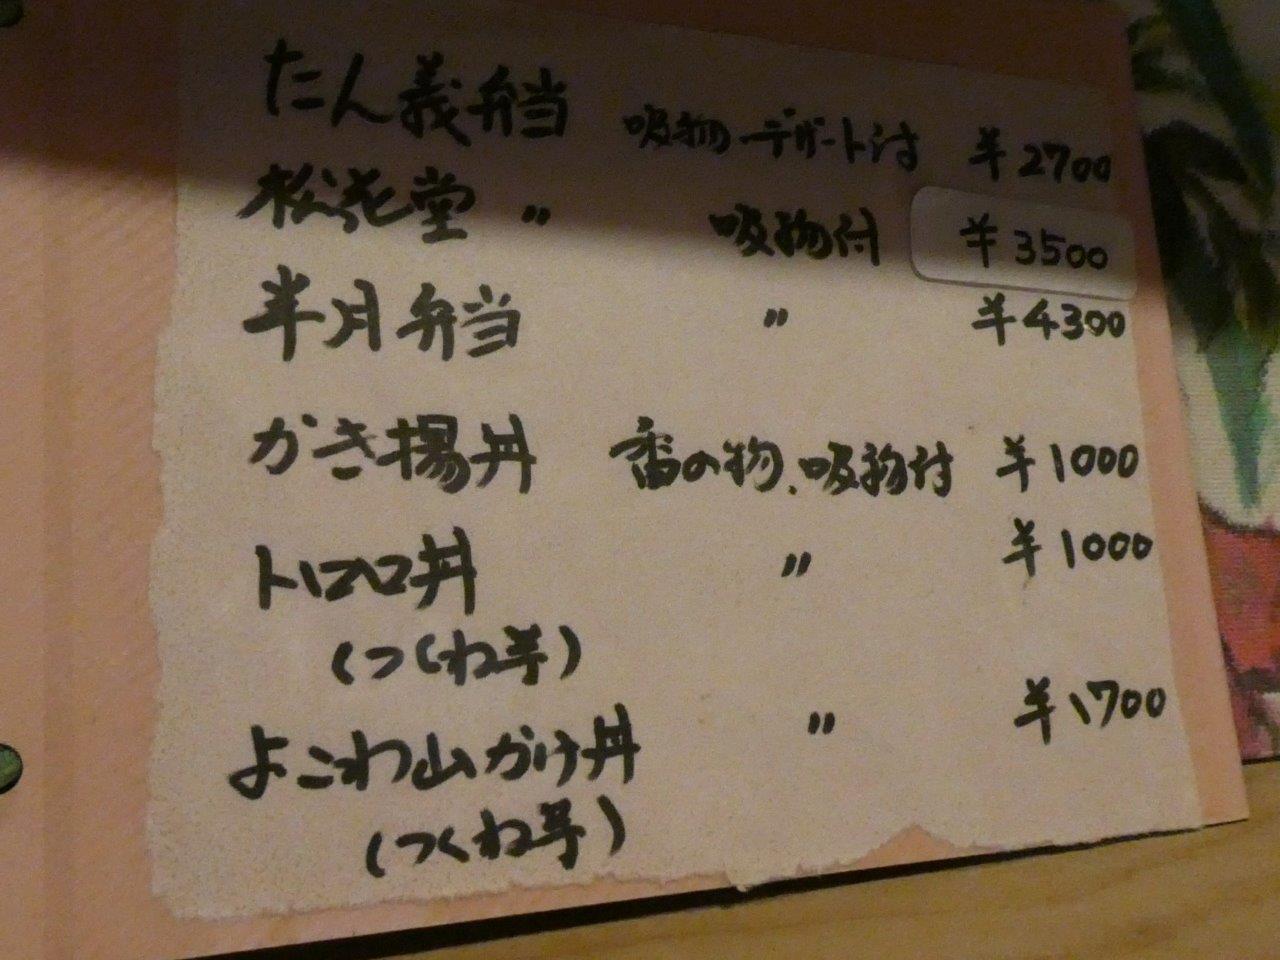 たん義弁当 吸物・デザート付 ¥2700
松花堂 〃 吸物付 ¥3500
半月弁当 〃 ¥4300
かき揚丼 香の物、吸物付 ¥1000
トロロ丼 〃 ¥1000
(つくね芋)
よこわ山かけ丼 〃 ¥1700
(つくね芋)